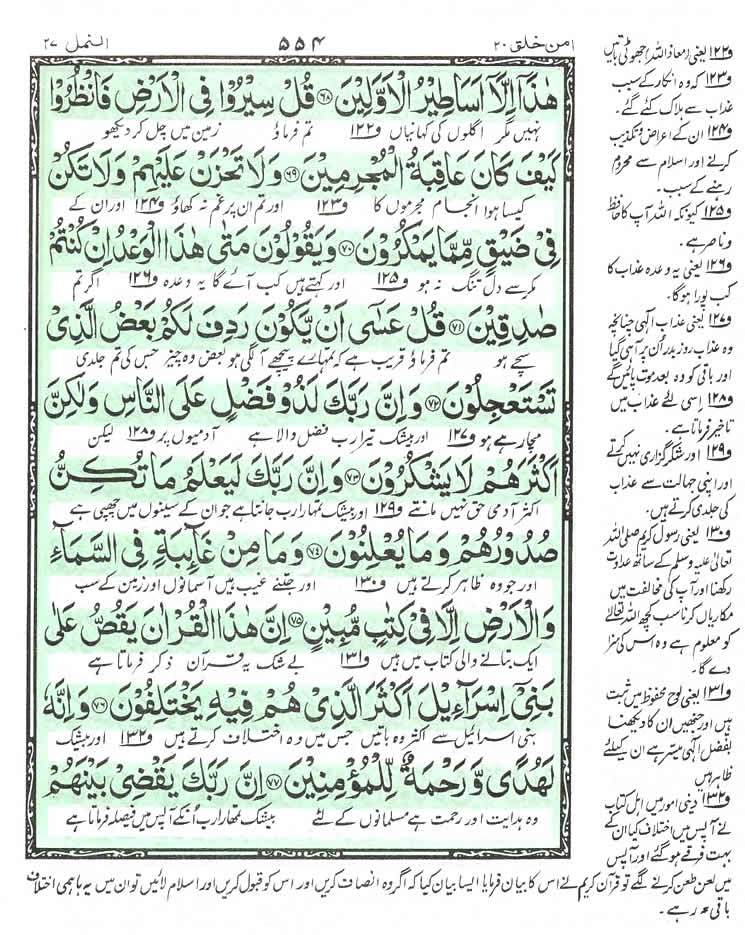 امن خلق ۲۰
۵۵۴
النمل ۲۷
هٰذَاۤ اِلَّاۤ اَسَاطِیْرُ الْاَوَّلِیْنَ ﴿۶۸﴾ قُلْ سِیْرُوْا فِی الْاَرْضِ فَانْظُرُوْا
نہیں مگر اگلوں کی کہانیاں و۱۲۲ تم فرماؤ زمین میں چل کر دیکھو
كَیْفَ كَانَ عَاقِبَةُ الْمُجْرِمِیْنَ ﴿۶۹﴾ وَلَا تَحْزَنْ عَلَیْهِمْ وَلَا تَكُنْ
کیسا ہوا انجام مجرموں کا و۱۲۳ اور تم ان پر غم نہ کھاؤ و۱۲۴ اور ان کے
فِیْ ضَیْقٍ مِّمَّا یَمْكُرُوْنَ ﴿۷۰﴾ وَیَقُوْلُوْنَ مَتٰى هٰذَا الْوَعْدُ اِنْ كُنْتُمْ
مکر سے دل تنگ نہ ہو و۱۲۵ اور کہتے ہیں کب آئے گا یہ وعدہ و۱۲۶ اگر تم
صٰدِقِیْنَ ﴿۷۱﴾ قُلْ عَسٰۤى اَنْ یَّكُوْنَ رَدِفَ لَكُمْ بَعْضُ الَّذِیْ
سچے ہو تم فرماؤ قریب ہے کہ تمہارے پیچھے آ لگی ہو بعض وہ چیز جس کی تم جلدی
تَسْتَعْجِلُوْنَ ﴿۷۲﴾ وَاِنَّ رَبَّكَ لَذُوْ فَضْلٍ عَلَى النَّاسِ وَلٰكِنَّ
مچا رہے ہو و۱۲۷ اور بیشک تیرا رب فضل والا ہے آدمیوں پر و۱۲۸ لیکن
اَكْثَرَهُمْ لَا یَشْكُرُوْنَ ﴿۷۳﴾ وَاِنَّ رَبَّكَ لَیَعْلَمُ مَا تُكِنُّ
اکثر آدمی حق نہیں مانتے و۱۲۹ اور بیشک تمہارا رب جانتا ہے جو ان کے سینوں میں چھپی ہے
صُدُوْرُهُمْ وَمَا یُعْلِنُوْنَ ﴿۷۴﴾ وَمَا مِنْ غَآىِٕبَةٍ فِی السَّمَآءِ
اور جو وہ ظاہر کرتے ہیں و۱۳۰ اور جتنے غیب ہیں آسمانوں اور زمین کے سب
وَالْاَرْضِ اِلَّا فِیْ كِتٰبٍ مُّبِیْنٍ ﴿۷۵﴾ اِنَّ هٰذَا الْقُرْاٰنَ یَقُصُّ عَلٰى
ایک بتانے والی کتاب میں ہیں و۱۳۱ بے شک یہ قرآن ذکر فرماتا ہے
بَنِیْۤ اِسْرَآءِیْلَ اَكْثَرَ الَّذِیْ هُمْ فِیْهِ یَخْتَلِفُوْنَ ﴿۷۶﴾ وَاِنَّهٗ
بنی اسرائیل سے اکثر وہ باتیں جس میں وہ اختلاف کرتے ہیں و۱۳۲ اور بیشک
لَهُدًى وَّرَحْمَةٌ لِّلْمُؤْمِنِیْنَ ﴿۷۷﴾ اِنَّ رَبَّكَ یَقْضِیْ بَیْنَهُمْ
وہ ہدایت اور رحمت ہے مسلمانوں کے لئے بیشک تمہارا رب اُنکے آپس میں فیصلہ فرماتا ہے
و۱۲۲ یعنی (معاذ اللہ) جھوٹی باتیں
و۱۲۳ کہ وہ انکار کے سبب
عذاب سے ہلاک کئے گئے۔
و۱۲۴ ان کے اعراض و تکذیب
کرنے اور اسلام سے محروم
رہنے کے سبب۔
و۱۲۵ کیونکہ اللہ آپ کا حافظ
و ناصر ہے۔
و۱۲۶ یعنی یہ وعدہ عذاب کا
کب پورا ہوگا۔
و۱۲۷ یعنی عذاب الٰہی چنانچہ
وہ عذاب روز بدر اُن پر آ ہی گیا
اور باقی کو وہ بعد موت پائیں گے
و۱۲۸ اسی لئے عذاب میں
تاخیر فرماتا ہے۔
و۱۲۹ اور شکر گزاری نہیں کرتے
اور اپنی جہالت سے عذاب
کی جلدی کرتے ہیں۔
و۱۳۰ یعنی رسول کریم صلی اللہ
تعالیٰ علیہ وسلم کے ساتھ عداوت
رکھنا اور آپ کی مخالفت میں
مکاریاں کرنا سب کچھ اللہ تعالیٰ
کو معلوم ہے وہ اس کی سزا
دے گا۔
و۱۳۱ یعنی لوح محفوظ میں ثبت
ہیں اور جنھیں ان کا دیکھنا
بفضل الٰہی میسر ہے ان کیلئے
ظاہر ہیں
و۱۳۲ دینی امور میں اہل کتاب
نے آپس میں اختلاف کیا ان کے
بہت فرقے ہو گئے اور آپس
میں لعن طعن کرنے لگے تو قرآن کریم نے اس کا بیان فرمایا ایسا بیان کیا کہ اگر وہ انصاف کریں اور اس کو قبول کریں اور اسلام لائیں تو ان میں یہ باہمی اختلاف
باقی نہ رہے۔